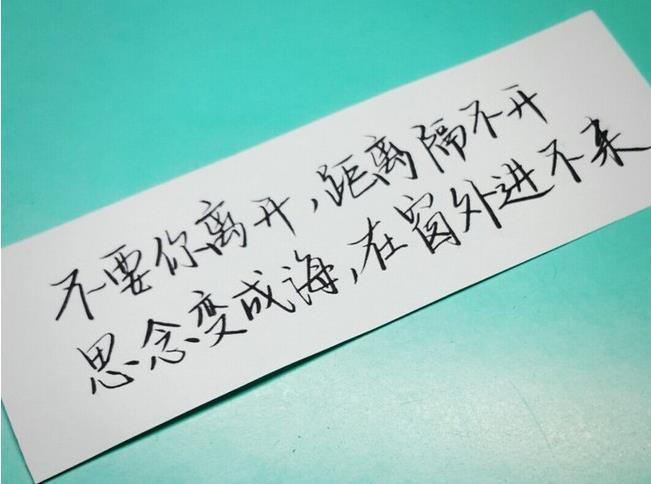 不要你离开,距离隔不开
思念变成海,在窗外进不来